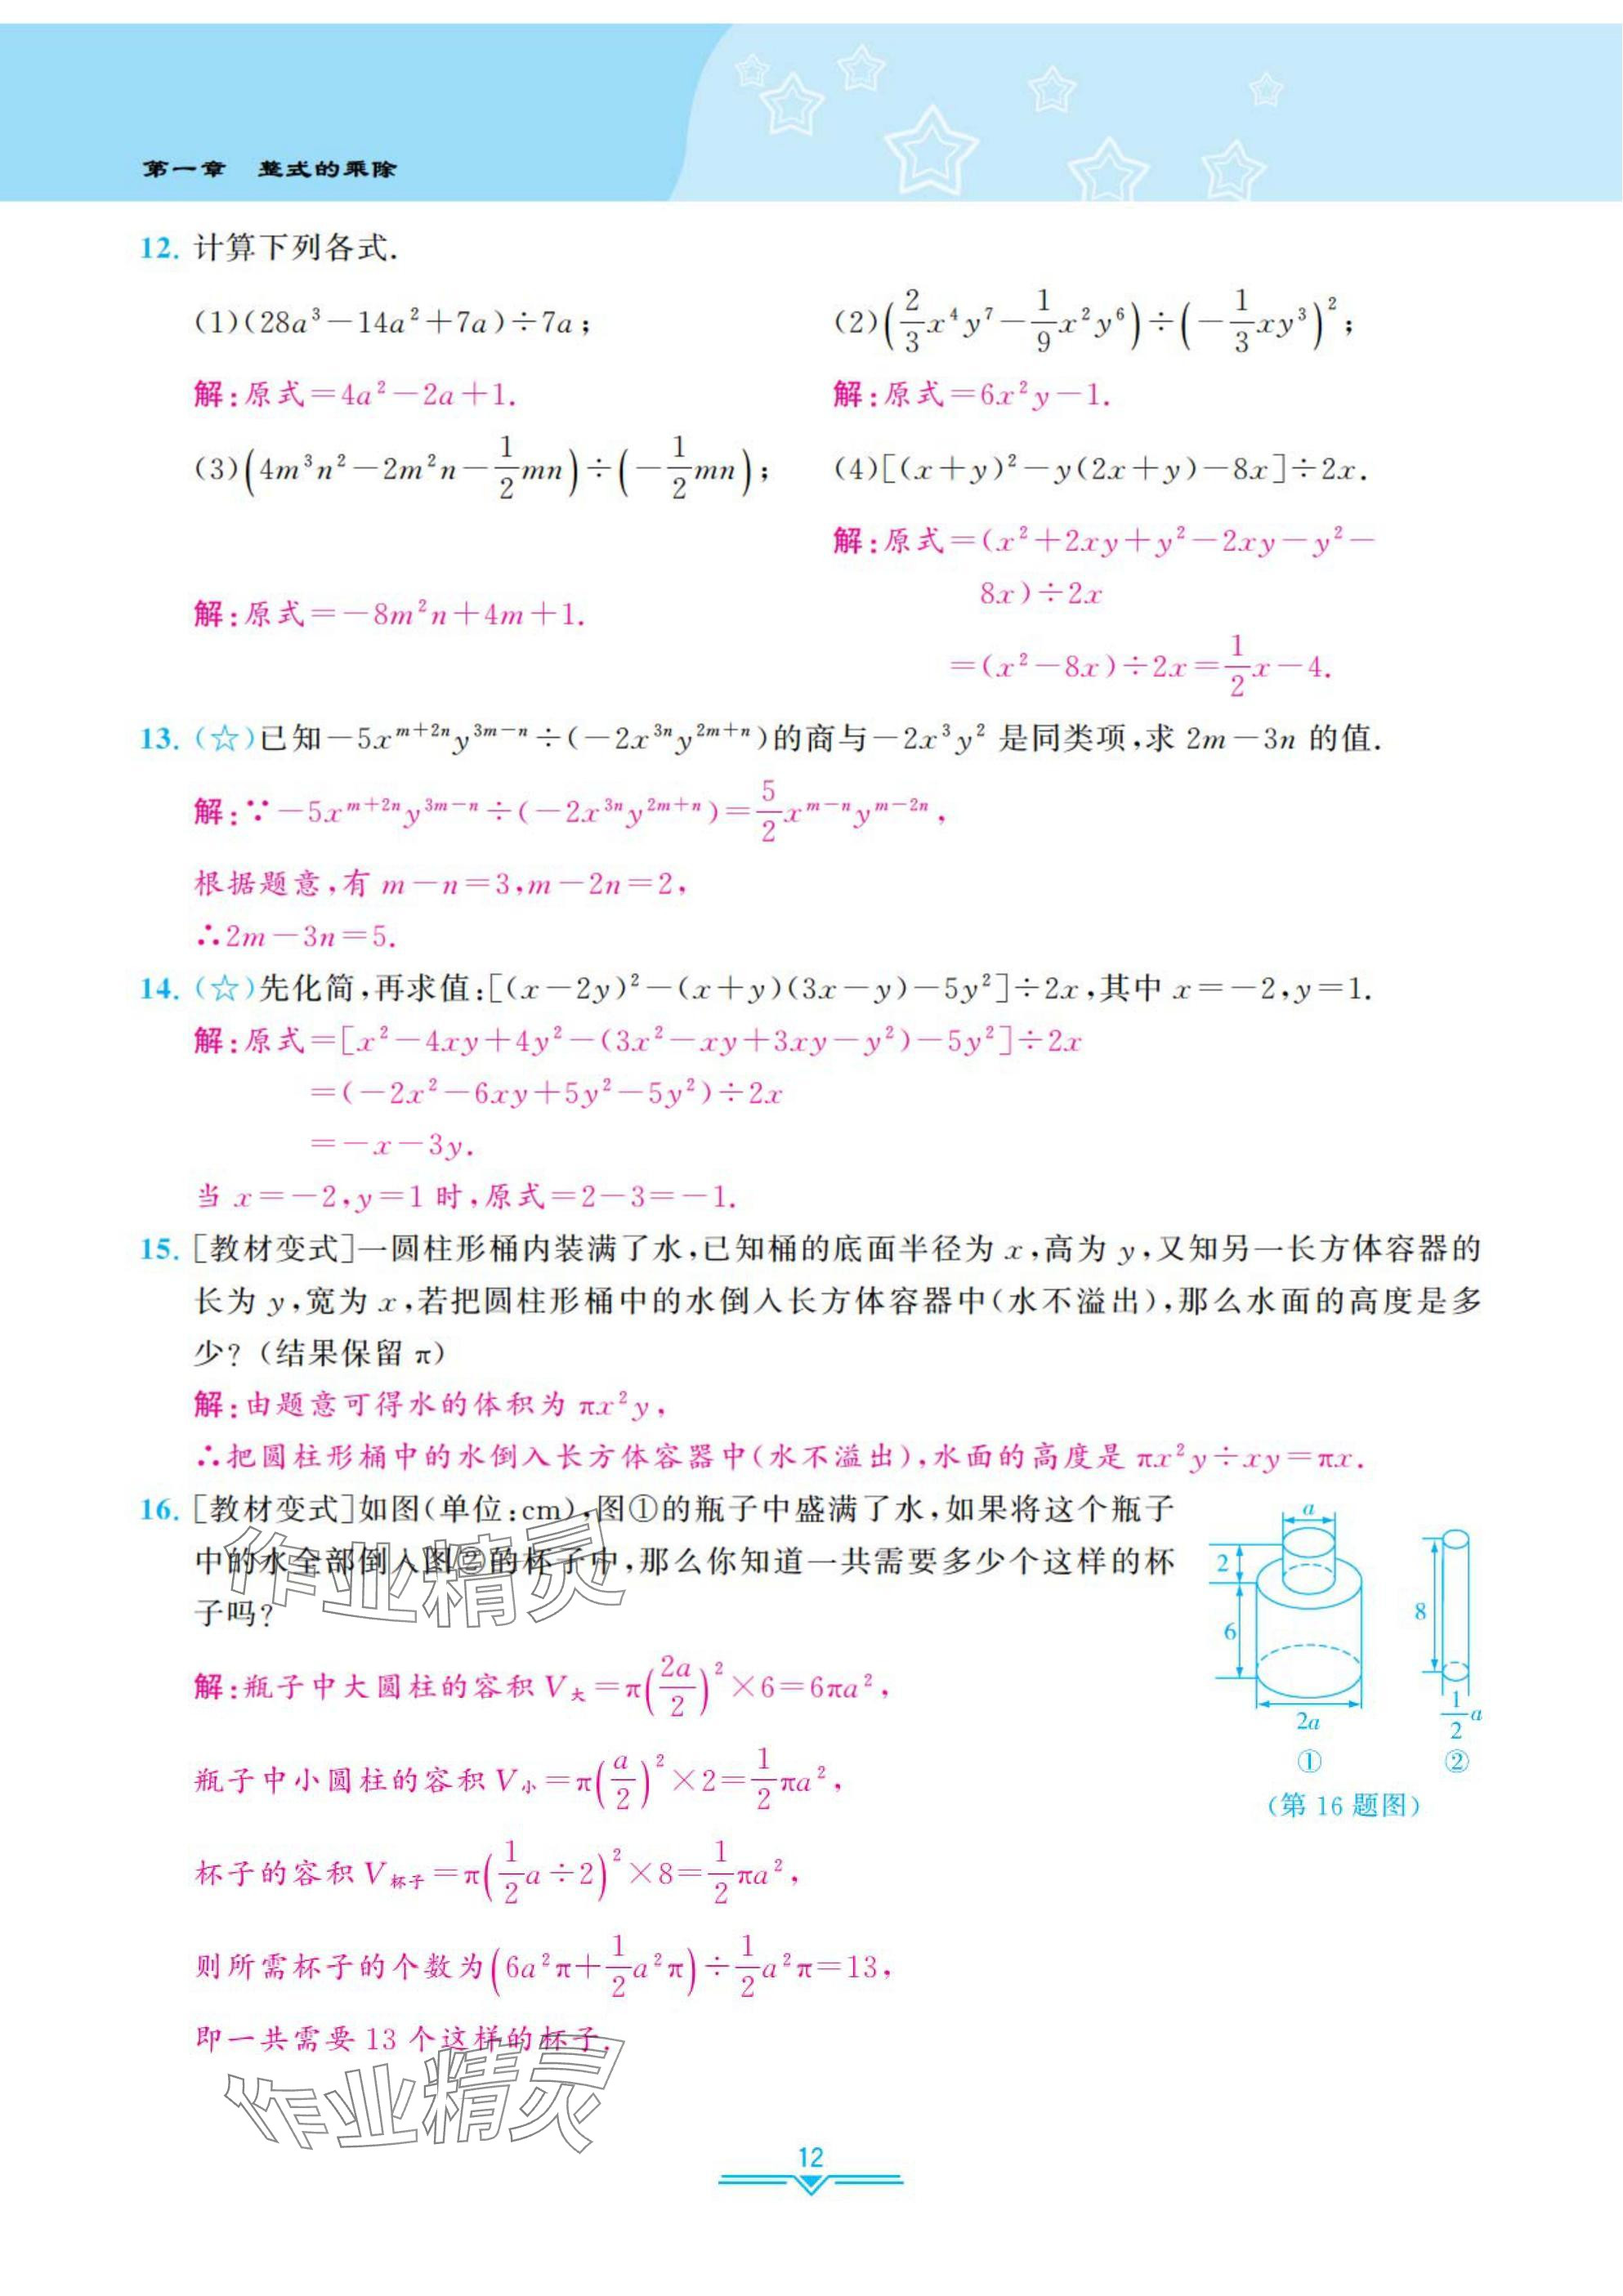 第一章　整式的乘除
12. 计算下列各式.
(1)(28a³－14a²＋7a)÷7a；　(2)(2/3x⁴y⁷－1/9x²y⁶)÷(－1/3xy³)²；
解:原式＝4a²－2a＋1.　解:原式＝6x²y－1.
(3)(4m³n²－2m²n－1/2mn)÷(－1/2mn)；　(4)[(x＋y)²－y(2x＋y)－8x]÷2x.
解:原式＝(x²＋2xy＋y²－2xy－y²－
8x)÷2x
解:原式＝－8m²n＋4m＋1.
＝(x²－8x)÷2x＝1/2x－4.
13. (☆)已知－5x^(m＋2n)y^(3m－n)÷(－2x^(3n)y^(2m＋n))的商与－2x³y² 是同类项,求 2m－3n 的值.
解:∵－5x^(m＋2n)y^(3m－n)÷(－2x^(3n)y^(2m＋n))＝5/2x^(m－n)y^(m－2n),
根据题意,有 m－n＝3,m－2n＝2,
∴2m－3n＝5.
14. (☆)先化简,再求值:[(x－2y)²－(x＋y)(3x－y)－5y²]÷2x,其中 x＝－2,y＝1.
解:原式＝[x²－4xy＋4y²－(3x²－xy＋3xy－y²)－5y²]÷2x
＝(－2x²－6xy＋5y²－5y²)÷2x
＝－x－3y.
当 x＝－2,y＝1 时,原式＝2－3＝－1.
15. [教材变式]一圆柱形桶内装满了水,已知桶的底面半径为 x,高为 y,又知另一长方体容器的
长为 y,宽为 x,若把圆柱形桶中的水倒入长方体容器中(水不溢出),那么水面的高度是多
少?(结果保留 π)
解:由题意可得水的体积为 πx²y,
∴把圆柱形桶中的水倒入长方体容器中(水不溢出),水面的高度是 πx²y÷xy＝πx.
16. [教材变式]如图(单位:cm),图①的瓶子中盛满了水,如果将这个瓶子
中的水全部倒入图②的杯子中,那么你知道一共需要多少个这样的杯
子吗?
解:瓶子中大圆柱的容积 V大＝π(2a/2)²×6＝6πa²,
瓶子中小圆柱的容积 V小＝π(a/2)²×2＝1/2πa²,
杯子的容积 V杯子＝π(1/2a÷2)²×8＝1/2πa²,
则所需杯子的个数为(6a²π＋1/2a²π)÷1/2a²π＝13,
即一共需要 13 个这样的杯子.
a
2
6
2a
①
8
1/2a
②
(第 16 题图)
作业精灵
作业精灵
12